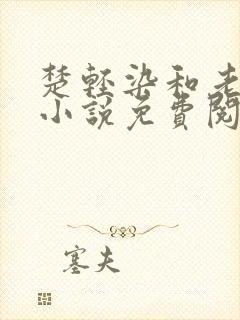 楚轻染和老
小说免費閱
塞夫